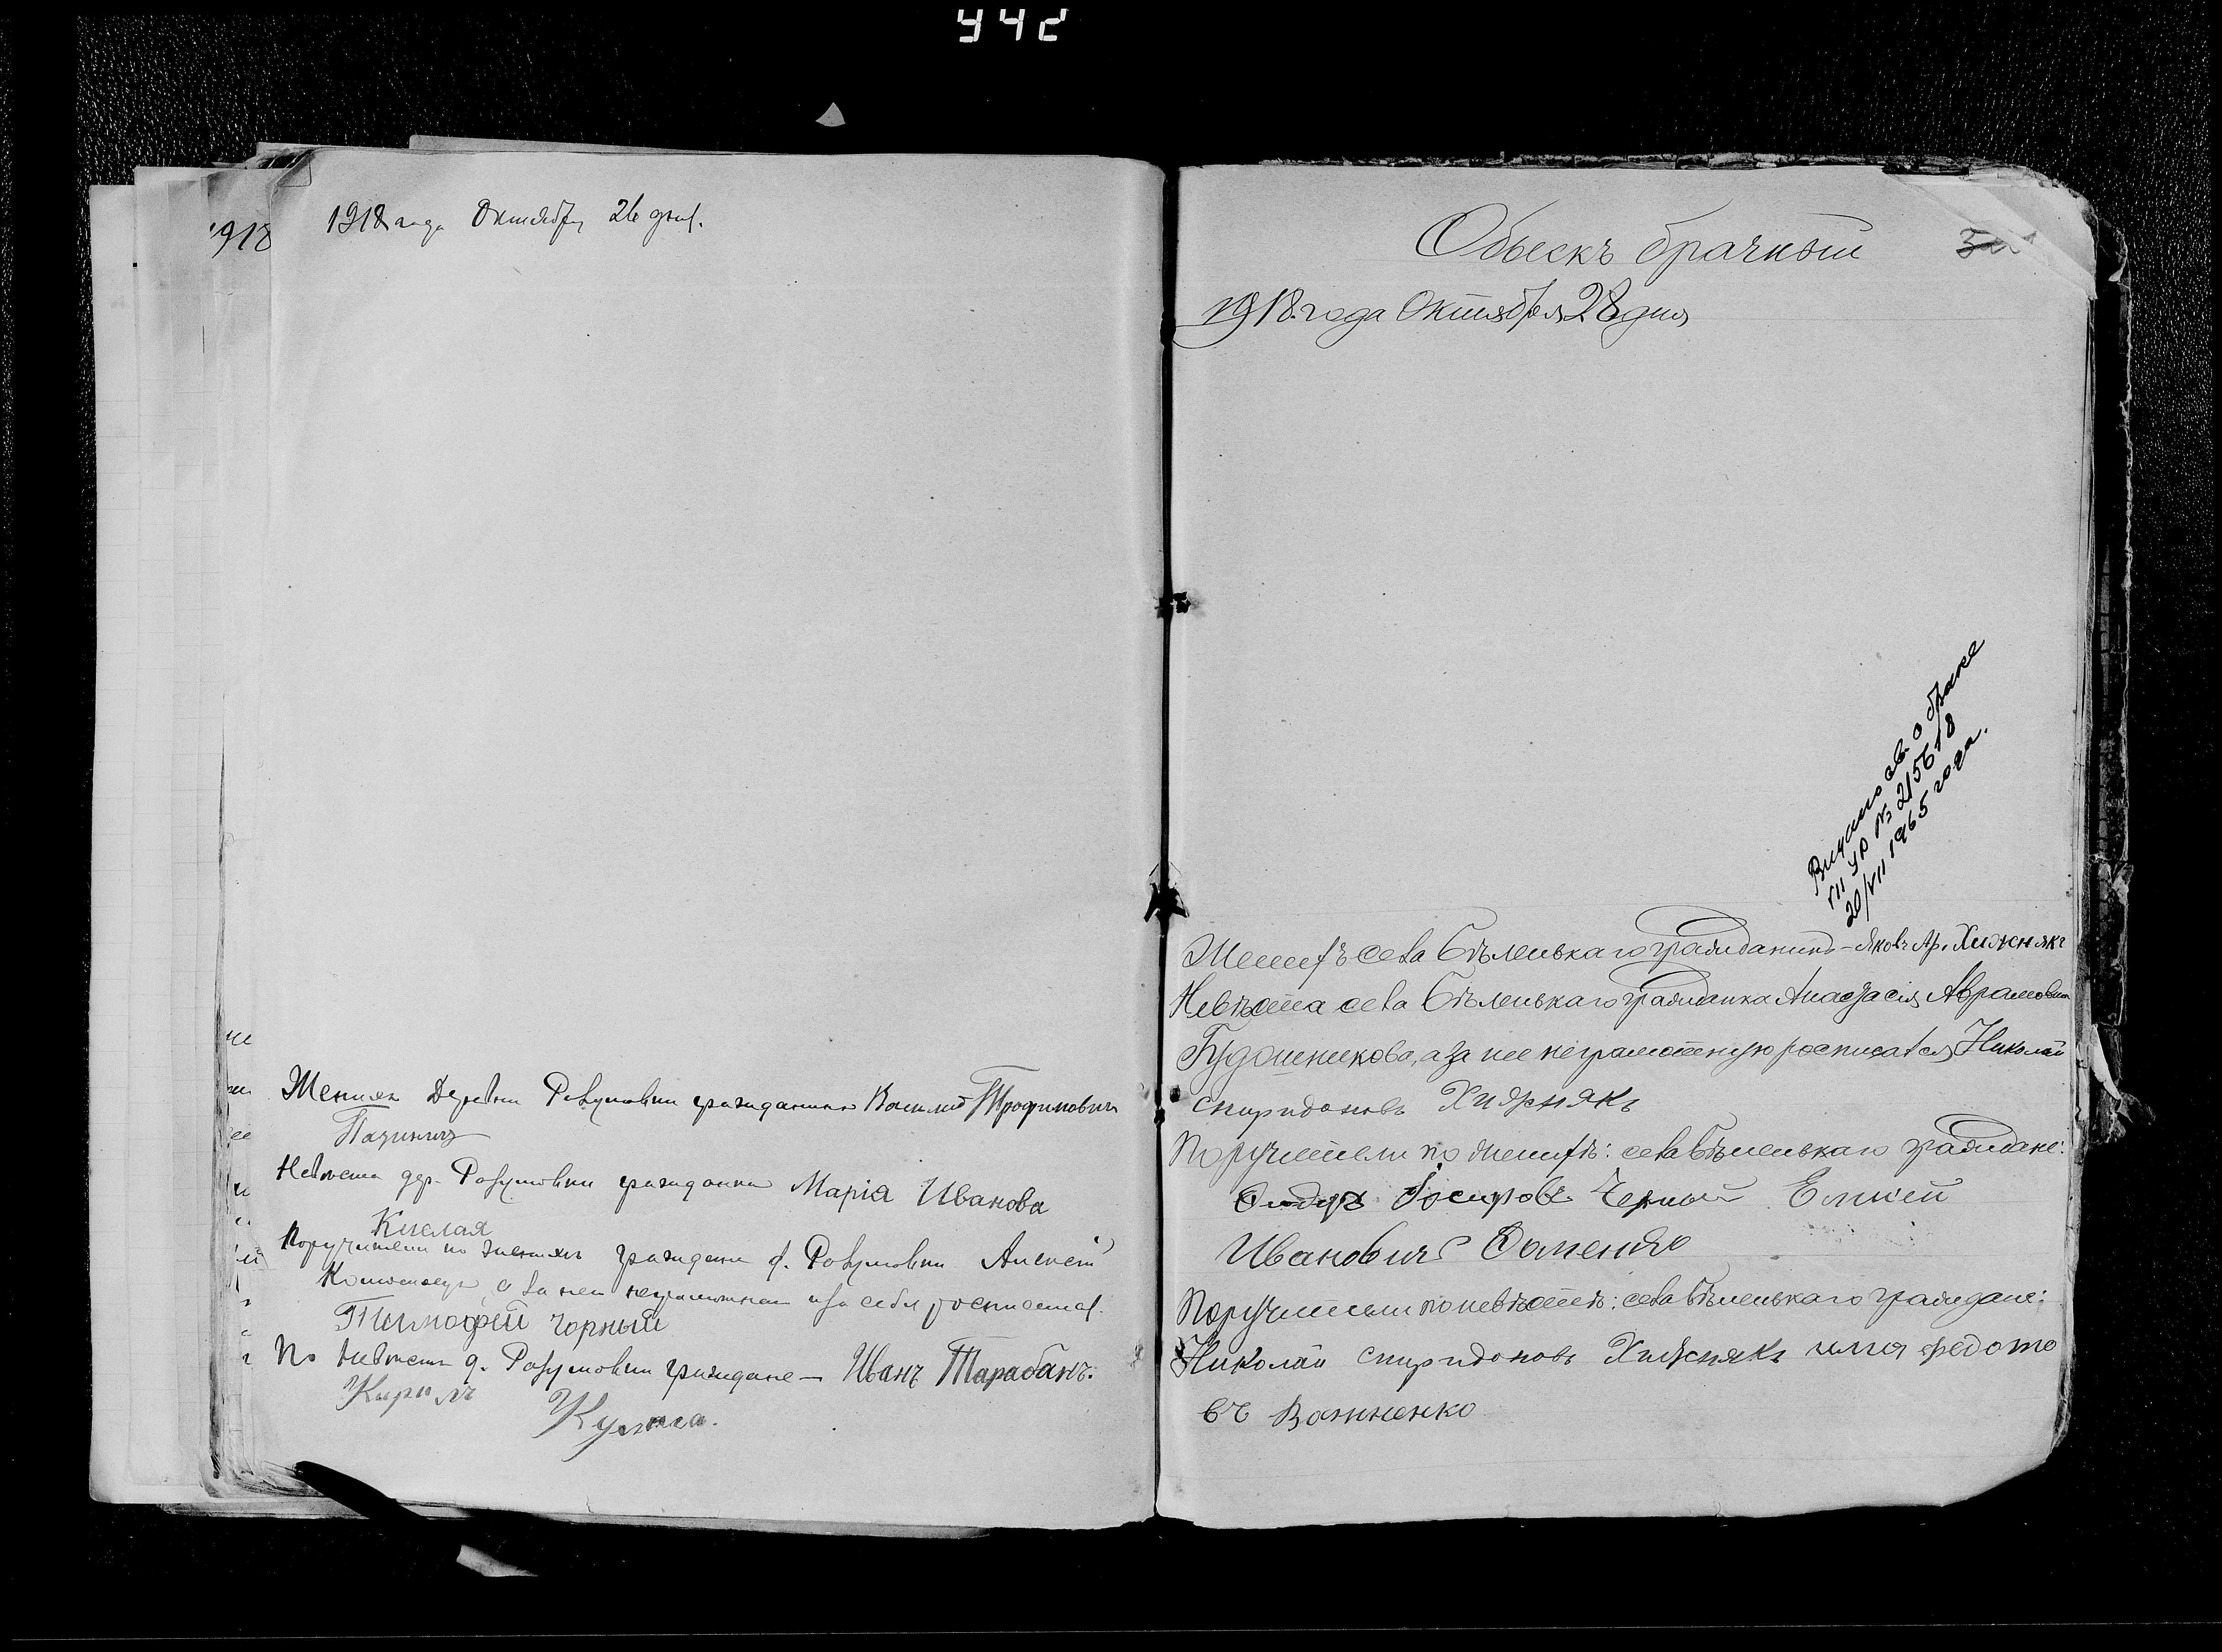 442
1918
1918 года Октября 26 дня.
Жених Деревни Разумовки гражданинъ Василий Трофимовичъ
Невеста дер. Разумовки гражданка Марія Иванова
Кислая
Поручители по женихе граждане д. Разумовки Алексей
а за него неграмотного и за себя росписался
Тимофей Чорный
По невесте д. Разумовки граждане — Иванъ Тарабанъ.
Кирилъ
Обыскъ брачный
1918 года Октября 28 дня
Выдано св. о браке
ГП УР № 215618
20/VII 1965 года.
Женихъ села Бѣленькаго гражданинъ - Яковъ Ар. Хижнякъ
Невѣста села Бѣленькаго гражданка Анастасія Аврамовна
а за нее неграмотную росписался Николай
спиридоновъ Хижнякъ
Поручители по женихѣ: села Бѣленькаго граждане:
Черный
Ивановичъ
Поручители по невѣстѣ: села Бѣленькаго граждане:
Николай спиридоновъ Хижнякъ илья федото
въ